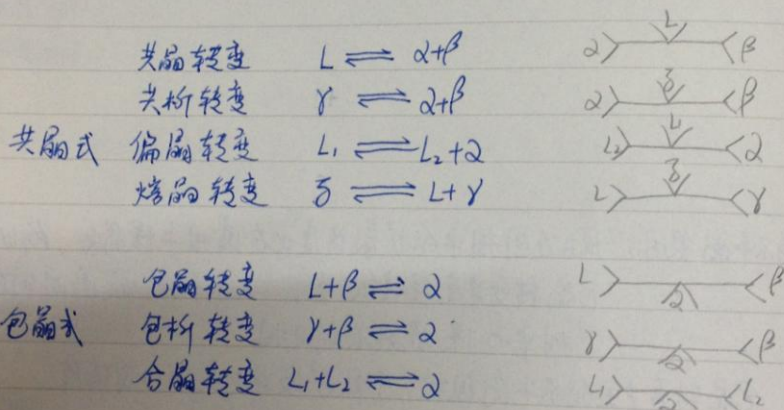 共晶转变 L ⇌ α+β α L β
共析转变 γ ⇌ α+β α δ β
共晶式 偏晶转变 L₁ ⇌ L₂+α L₂ L α
熔晶转变 δ ⇌ L+γ L δ γ
包晶转变 L+β ⇌ α L α β
包晶式 包析转变 γ+β ⇌ α γ α β
合晶转变 L₁+L₂ ⇌ α L₁ α L₂